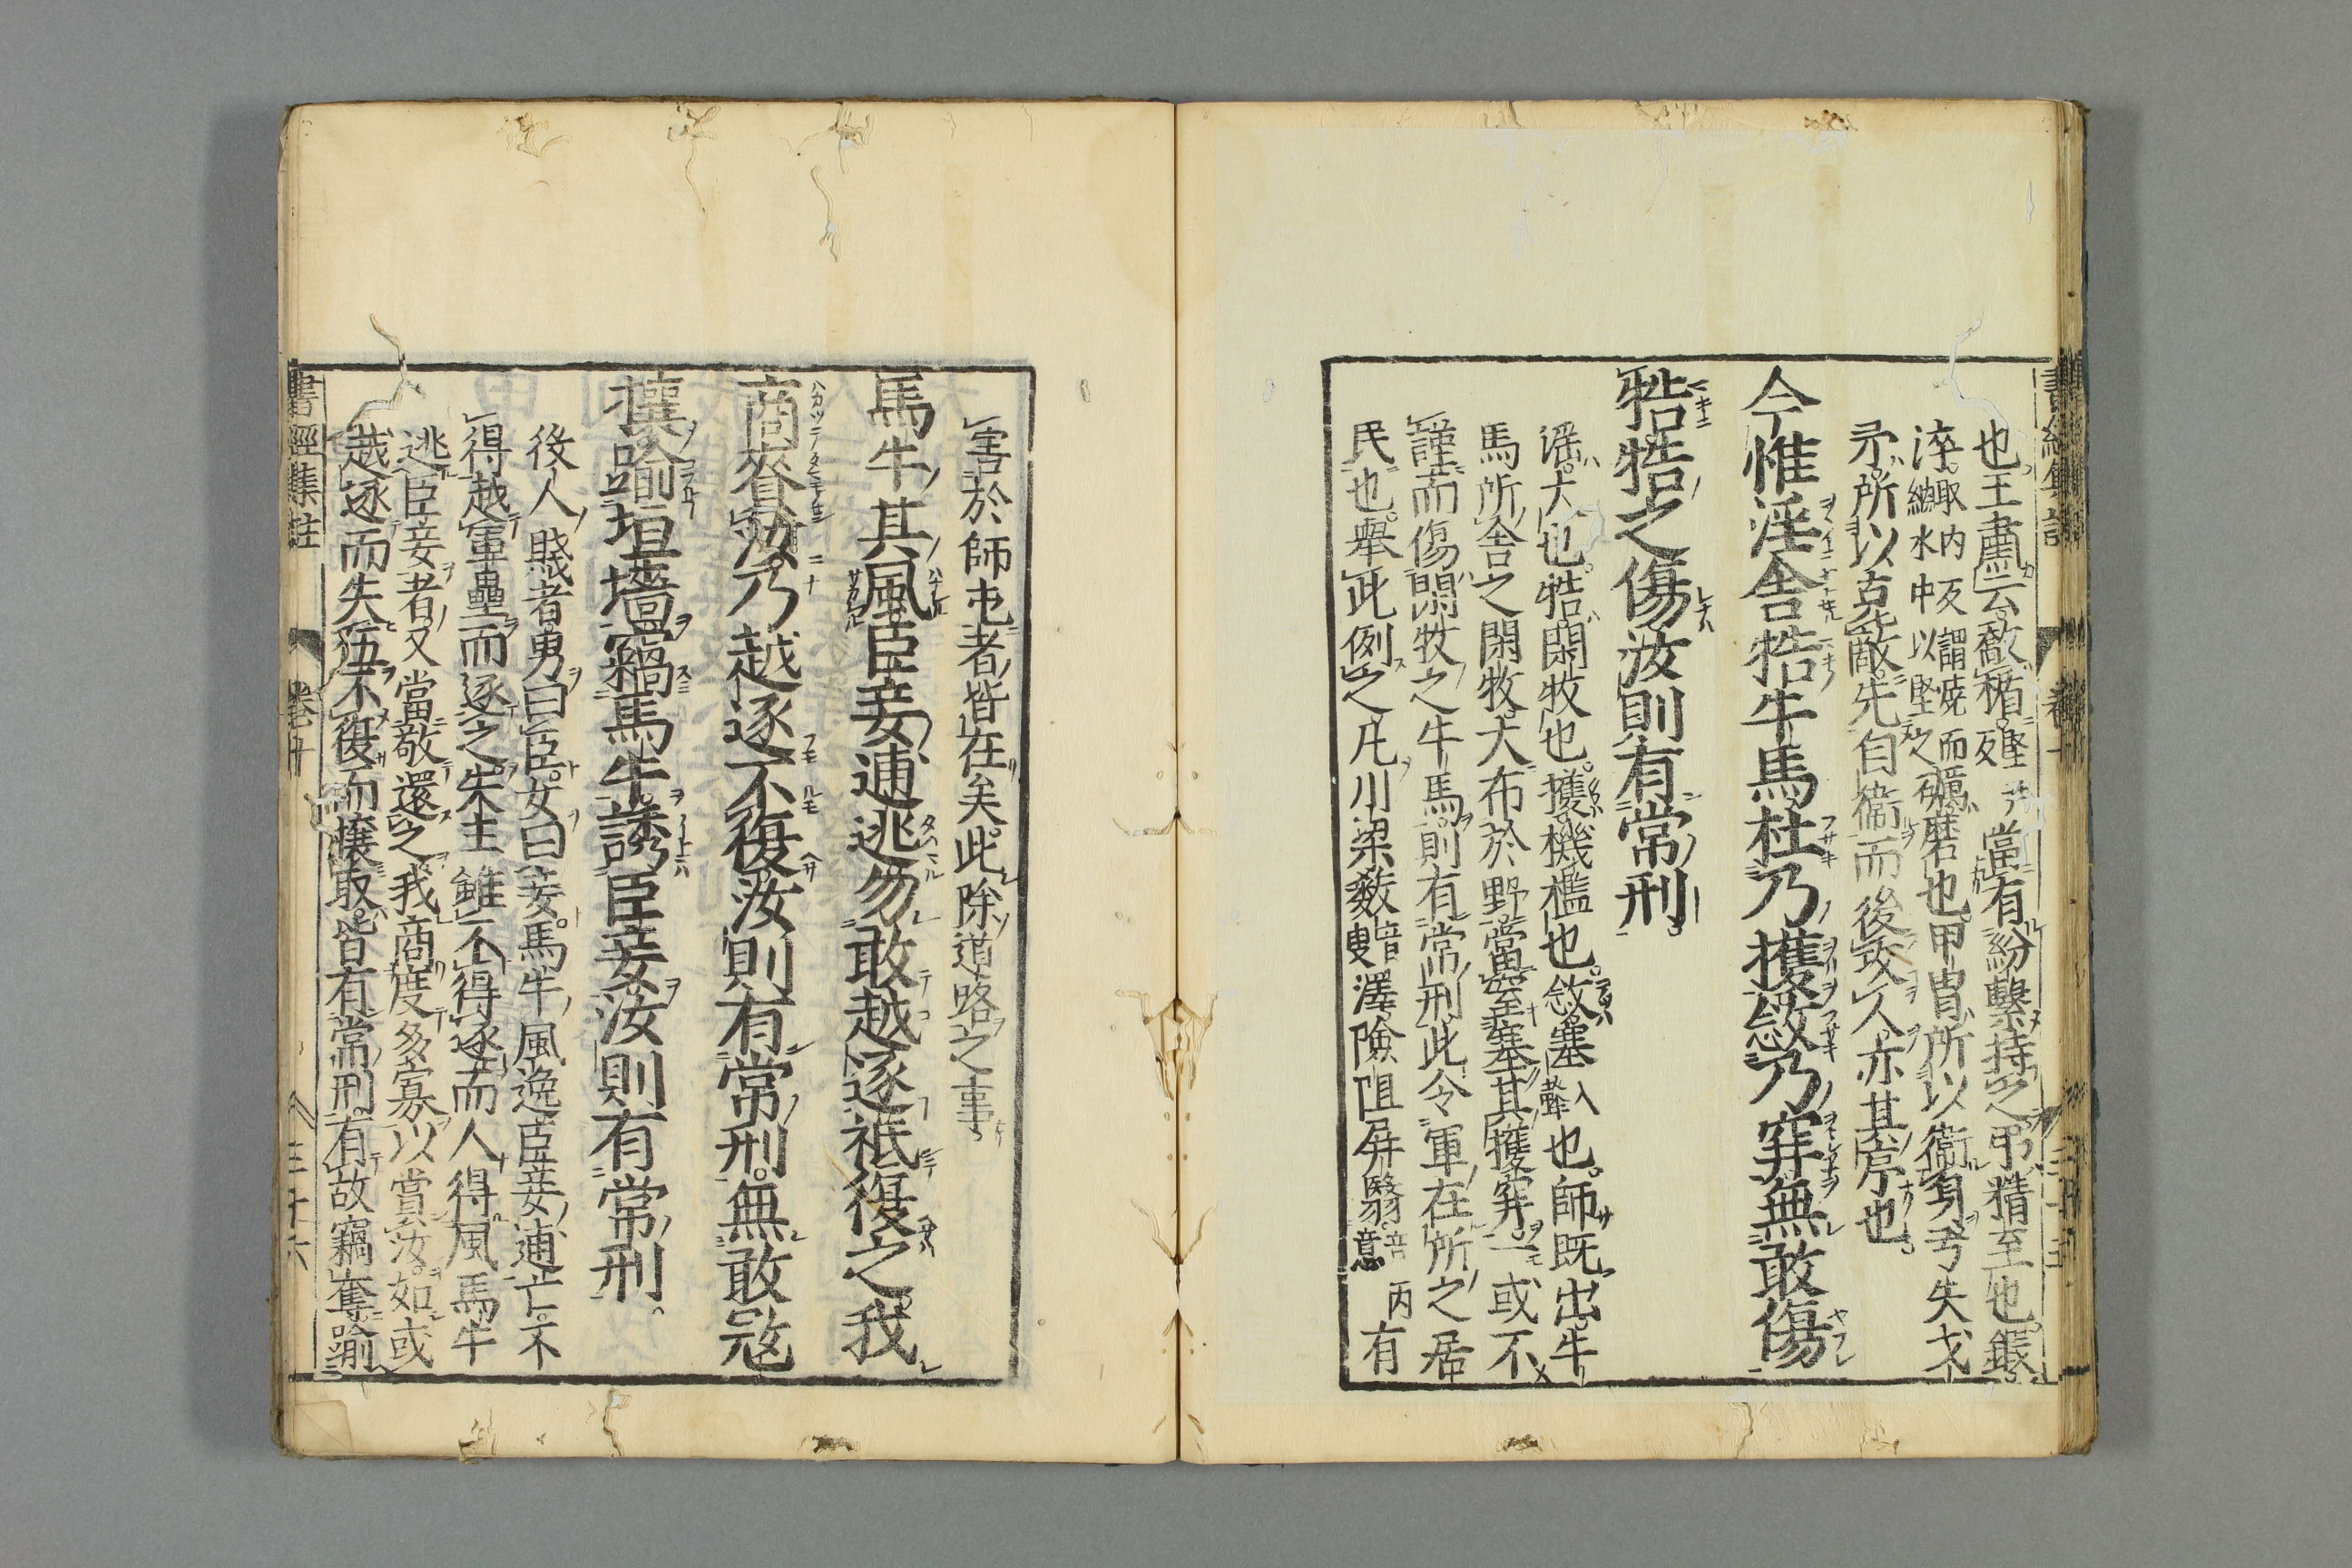 也王肅云敿楯堅反當有紛繫持之弔精至也鍜
淬取内反謂焼而納水中以堅之礪磨也甲冑所以衛身弓矢戈
矛所以克敵先自衛而後攻人亦其序也
今惟淫舎牿牛馬杜乃擭敜乃穽無敢傷
牿牿之傷汝則有常刑
淫大也牿閑牧也擭機檻也敜塞入聲也師既出牛
馬所舎之閑牧大布於野當窒塞其擭穽一或不
謹而傷閑牧之牛馬則有常刑此令軍在所之居
民也舉此例之凡川梁薮音叟澤險阻屏翳音意丙有
害於師屯者皆在矣此除道路之事
馬牛其風臣妾逋逃勿敢越逐祗復之我
商賚汝乃越逐不復汝則有常刑無敢寇
攘踰垣墻竊馬牛誘臣妾汝則有常刑
役人賤者男曰臣女曰妾馬牛風逸臣妾逋亡不
得越軍壘而逐之失主雖不得逐而人得風馬牛
逃臣妾者又當敬還之我商度多寡以賞汝如或
越逐而失伍不復而攘取皆有常刑有故竊奪踰
書經集註 卷十 三十六